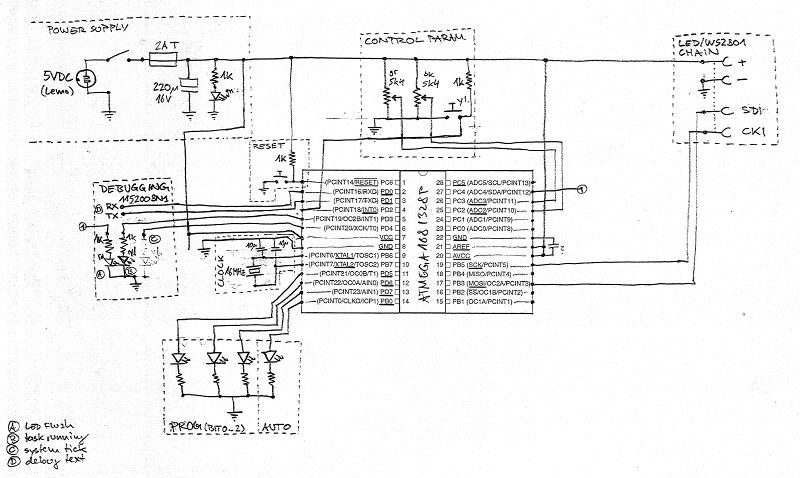 POWER SUPPLY
2A T
5VDC
(Lemo)
220µ
16V
1K
CONTROL PARAM
5k4
5k4
1k
LED/WS2801
CHAIN
+
−
SDI
CKI
RESET
1K
DEBUGGING
115200 8N1
D RX
TX
1K
1K
C
A
B
CLOCK
16MHz
ATMEGA 168/328P
(PCINT14/RESET) PC6 1
(PCINT16/RXD) PD0 2
(PCINT17/TXD) PD1 3
(PCINT18/INT0) PD2 4
(PCINT19/OC2B/INT1) PD3 5
(PCINT20/XCK/T0) PD4 6
VCC 7
GND 8
(PCINT6/XTAL1/TOSC1) PB6 9
(PCINT7/XTAL2/TOSC2) PB7 10
(PCINT21/OC0B/T1) PD5 11
(PCINT22/OC0A/AIN0) PD6 12
(PCINT23/AIN1) PD7 13
(PCINT0/CLKO/ICP1) PB0 14
28 PC5 (ADC5/SCL/PCINT13)
27 PC4 (ADC4/SDA/PCINT12)
26 PC3 (ADC3/PCINT11)
25 PC2 (ADC2/PCINT10)
24 PC1 (ADC1/PCINT9)
23 PC0 (ADC0/PCINT8)
22 GND
21 AREF
20 AVCC
19 PB5 (SCK/PCINT5)
18 PB4 (MISO/PCINT4)
17 PB3 (MOSI/OC2A/PCINT3)
16 PB2 (SS/OC1B/PCINT2)
15 PB1 (OC1A/PCINT1)
PROG (BIT0..2)
AUTO
A LED flush
B task running
C system tick
D debug text